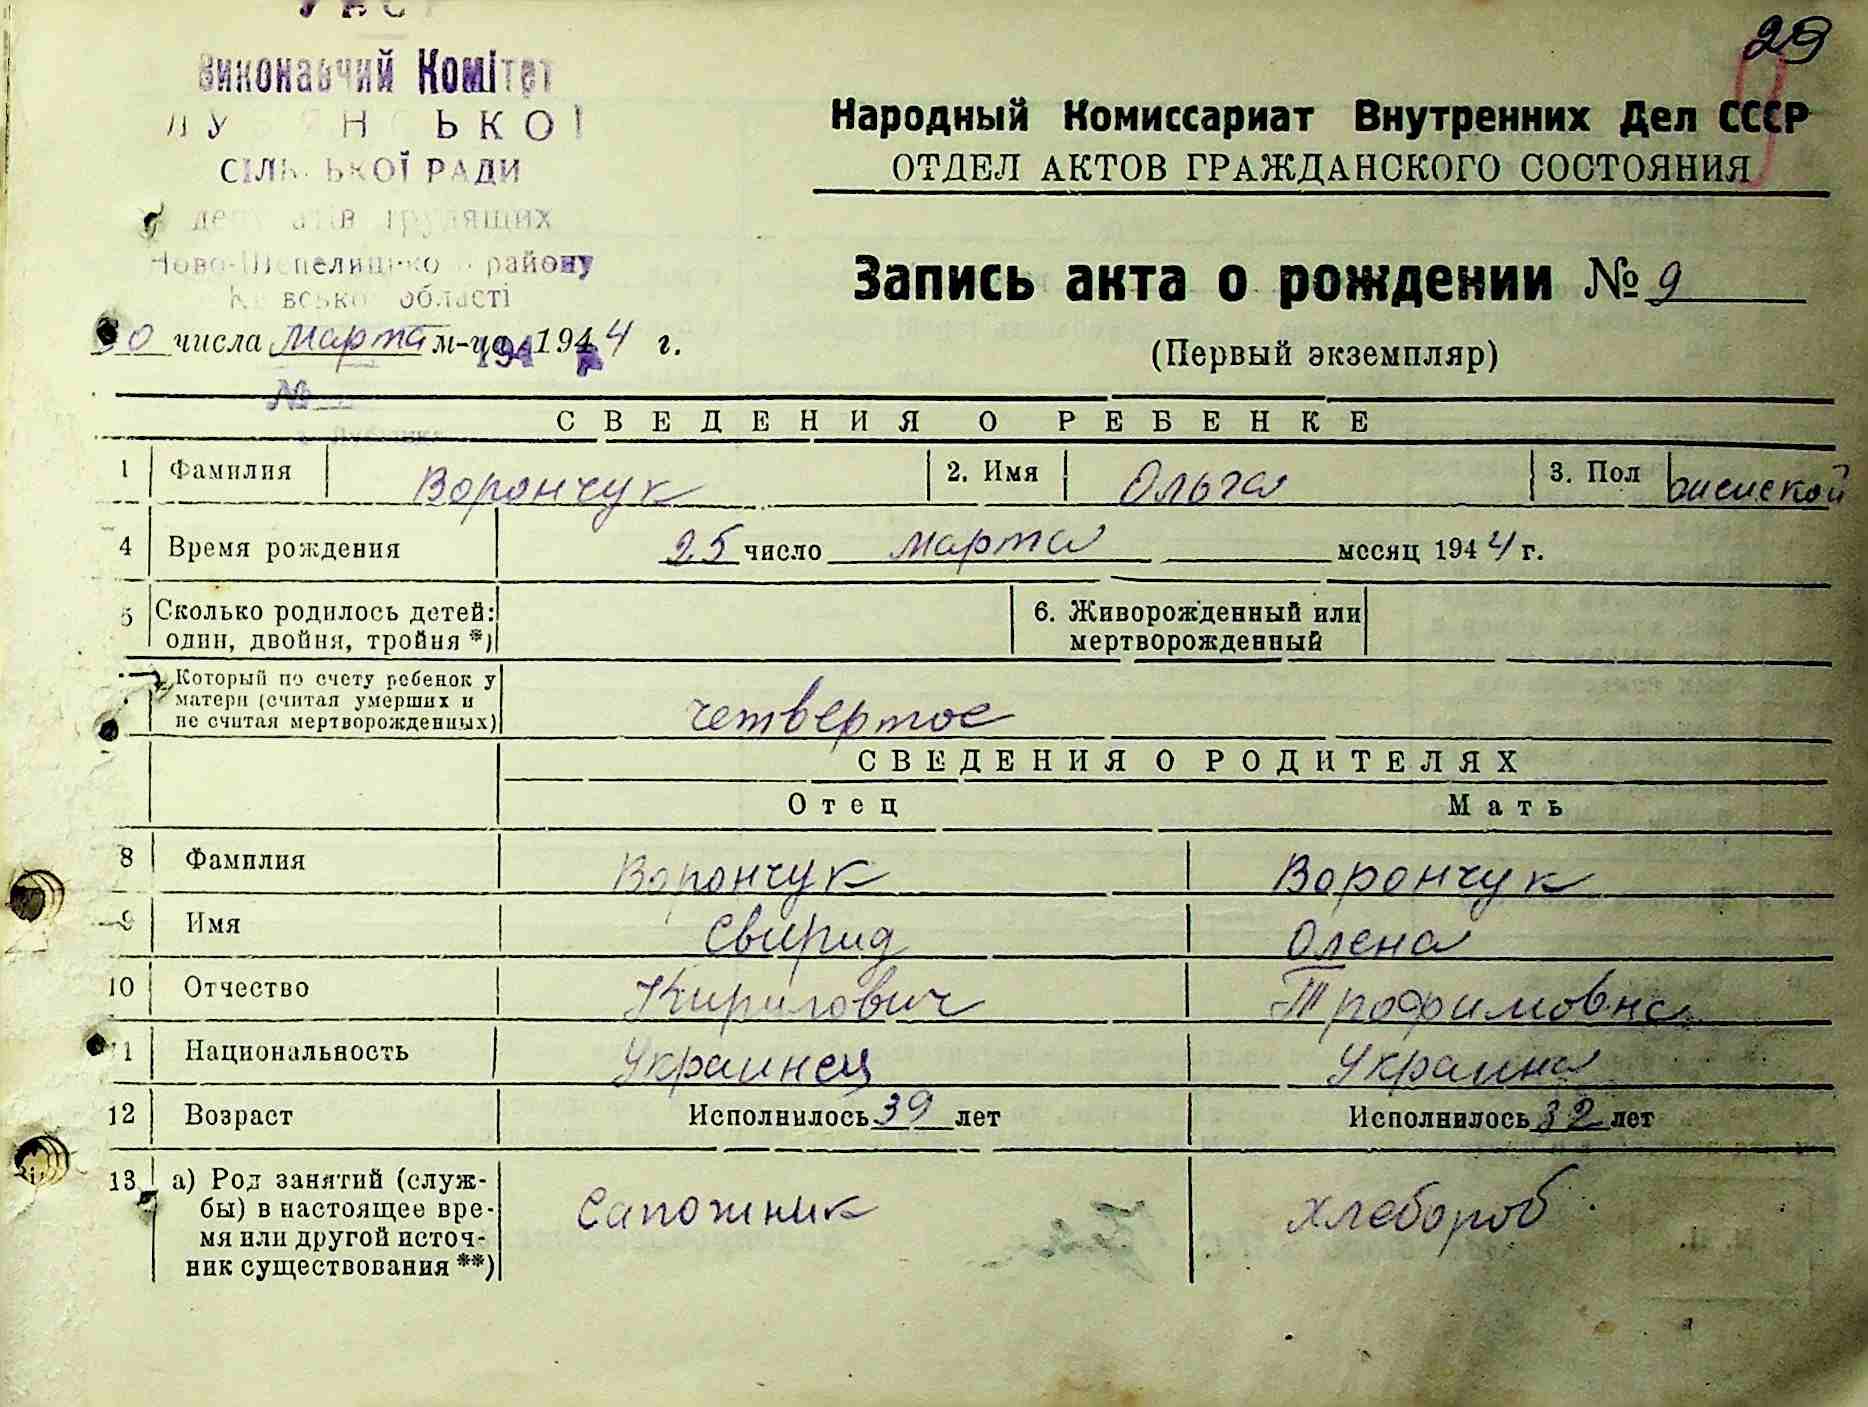 УРСР
Виконавчий Комітет
ЛУБ'ЯНСЬКОЇ
СІЛЬСЬКОЇ РАДИ
депутатів трудящих
Ново-Шепелицького району
Київської області
29
Народный Комиссариат Внутренних Дел СССР
ОТДЕЛ АКТОВ ГРАЖДАНСКОГО СОСТОЯНИЯ
Запись акта о рождении № 9
(Первый экземпляр)
30 числа марта м-ца 1944 г.
№
СВЕДЕНИЯ О РЕБЕНКЕ
1 Фамилия Ворончук 2. Имя Ольга 3. Пол
4 Время рождения 25 число марта месяц 1944 г.
5 Сколько родилось детей: 6. Живорожденный или
один, двойня, тройня *) мертворожденный
Который по счету ребенок у
матери (считая умерших и
не считая мертворожденных) четвертое
СВЕДЕНИЯ О РОДИТЕЛЯХ
Отец Мать
8 Фамилия Ворончук Ворончук
9 Имя Свирид Олена
10 Отчество Кирилович Трофимовна
11 Национальность Украинец Украина
12 Возраст Исполнилось 39 лет Исполнилось 32 лет
13 а) Род занятий (служ-
бы) в настоящее вре- Сапожник хлебороб
мя или другой источ-
ник существования **)